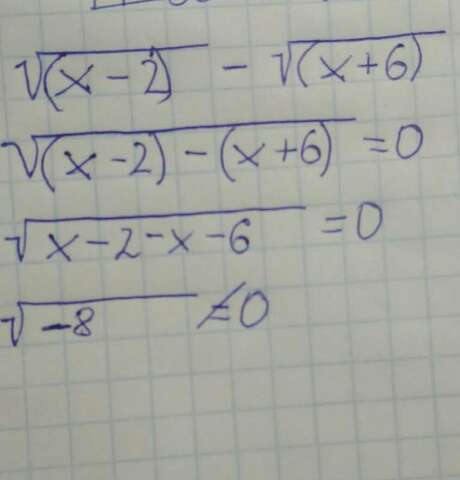 √(x-2) - √(x+6)
√(x-2)-(x+6) =0
√x-2-x-6 =0
√-8 ≠0